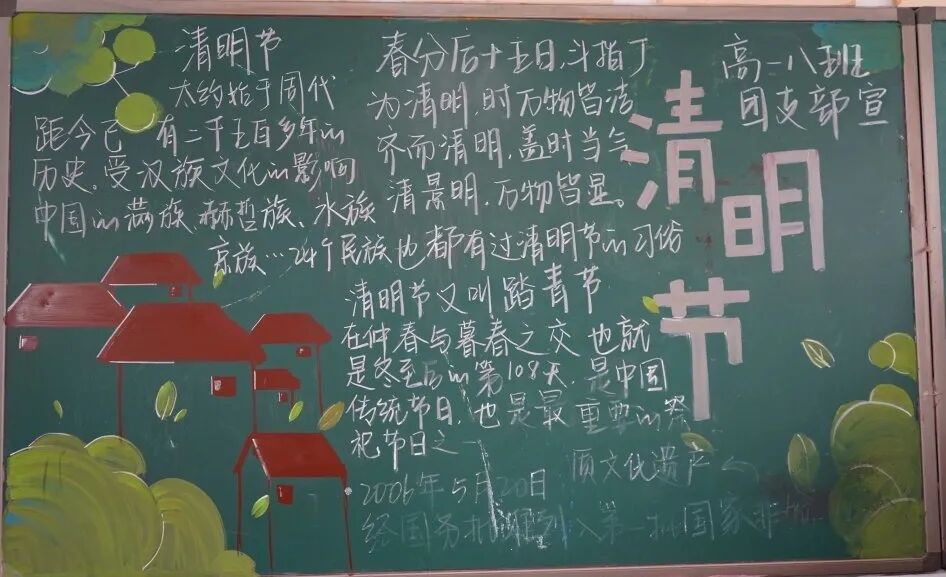 清明节
太约始于周代
距今已有二千五百多年的
历史、受汉族文化的影响
中国的满族、赫哲族、水族
京族…24个民族也都有过清明节的习俗
春分后十五日，斗指丁
为清明，时万物皆洁
齐而清明，盖时当气
清景明，万物皆显。
清明节又叫踏青节
在仲春与暮春之交也就
是冬至后的第108天，是中国
传统节日，也是最重要的祭
祀节日之一
2006年5月20日
经国务
入第一批国家非
质文化遗产
清明节
高一八班
团支部宣